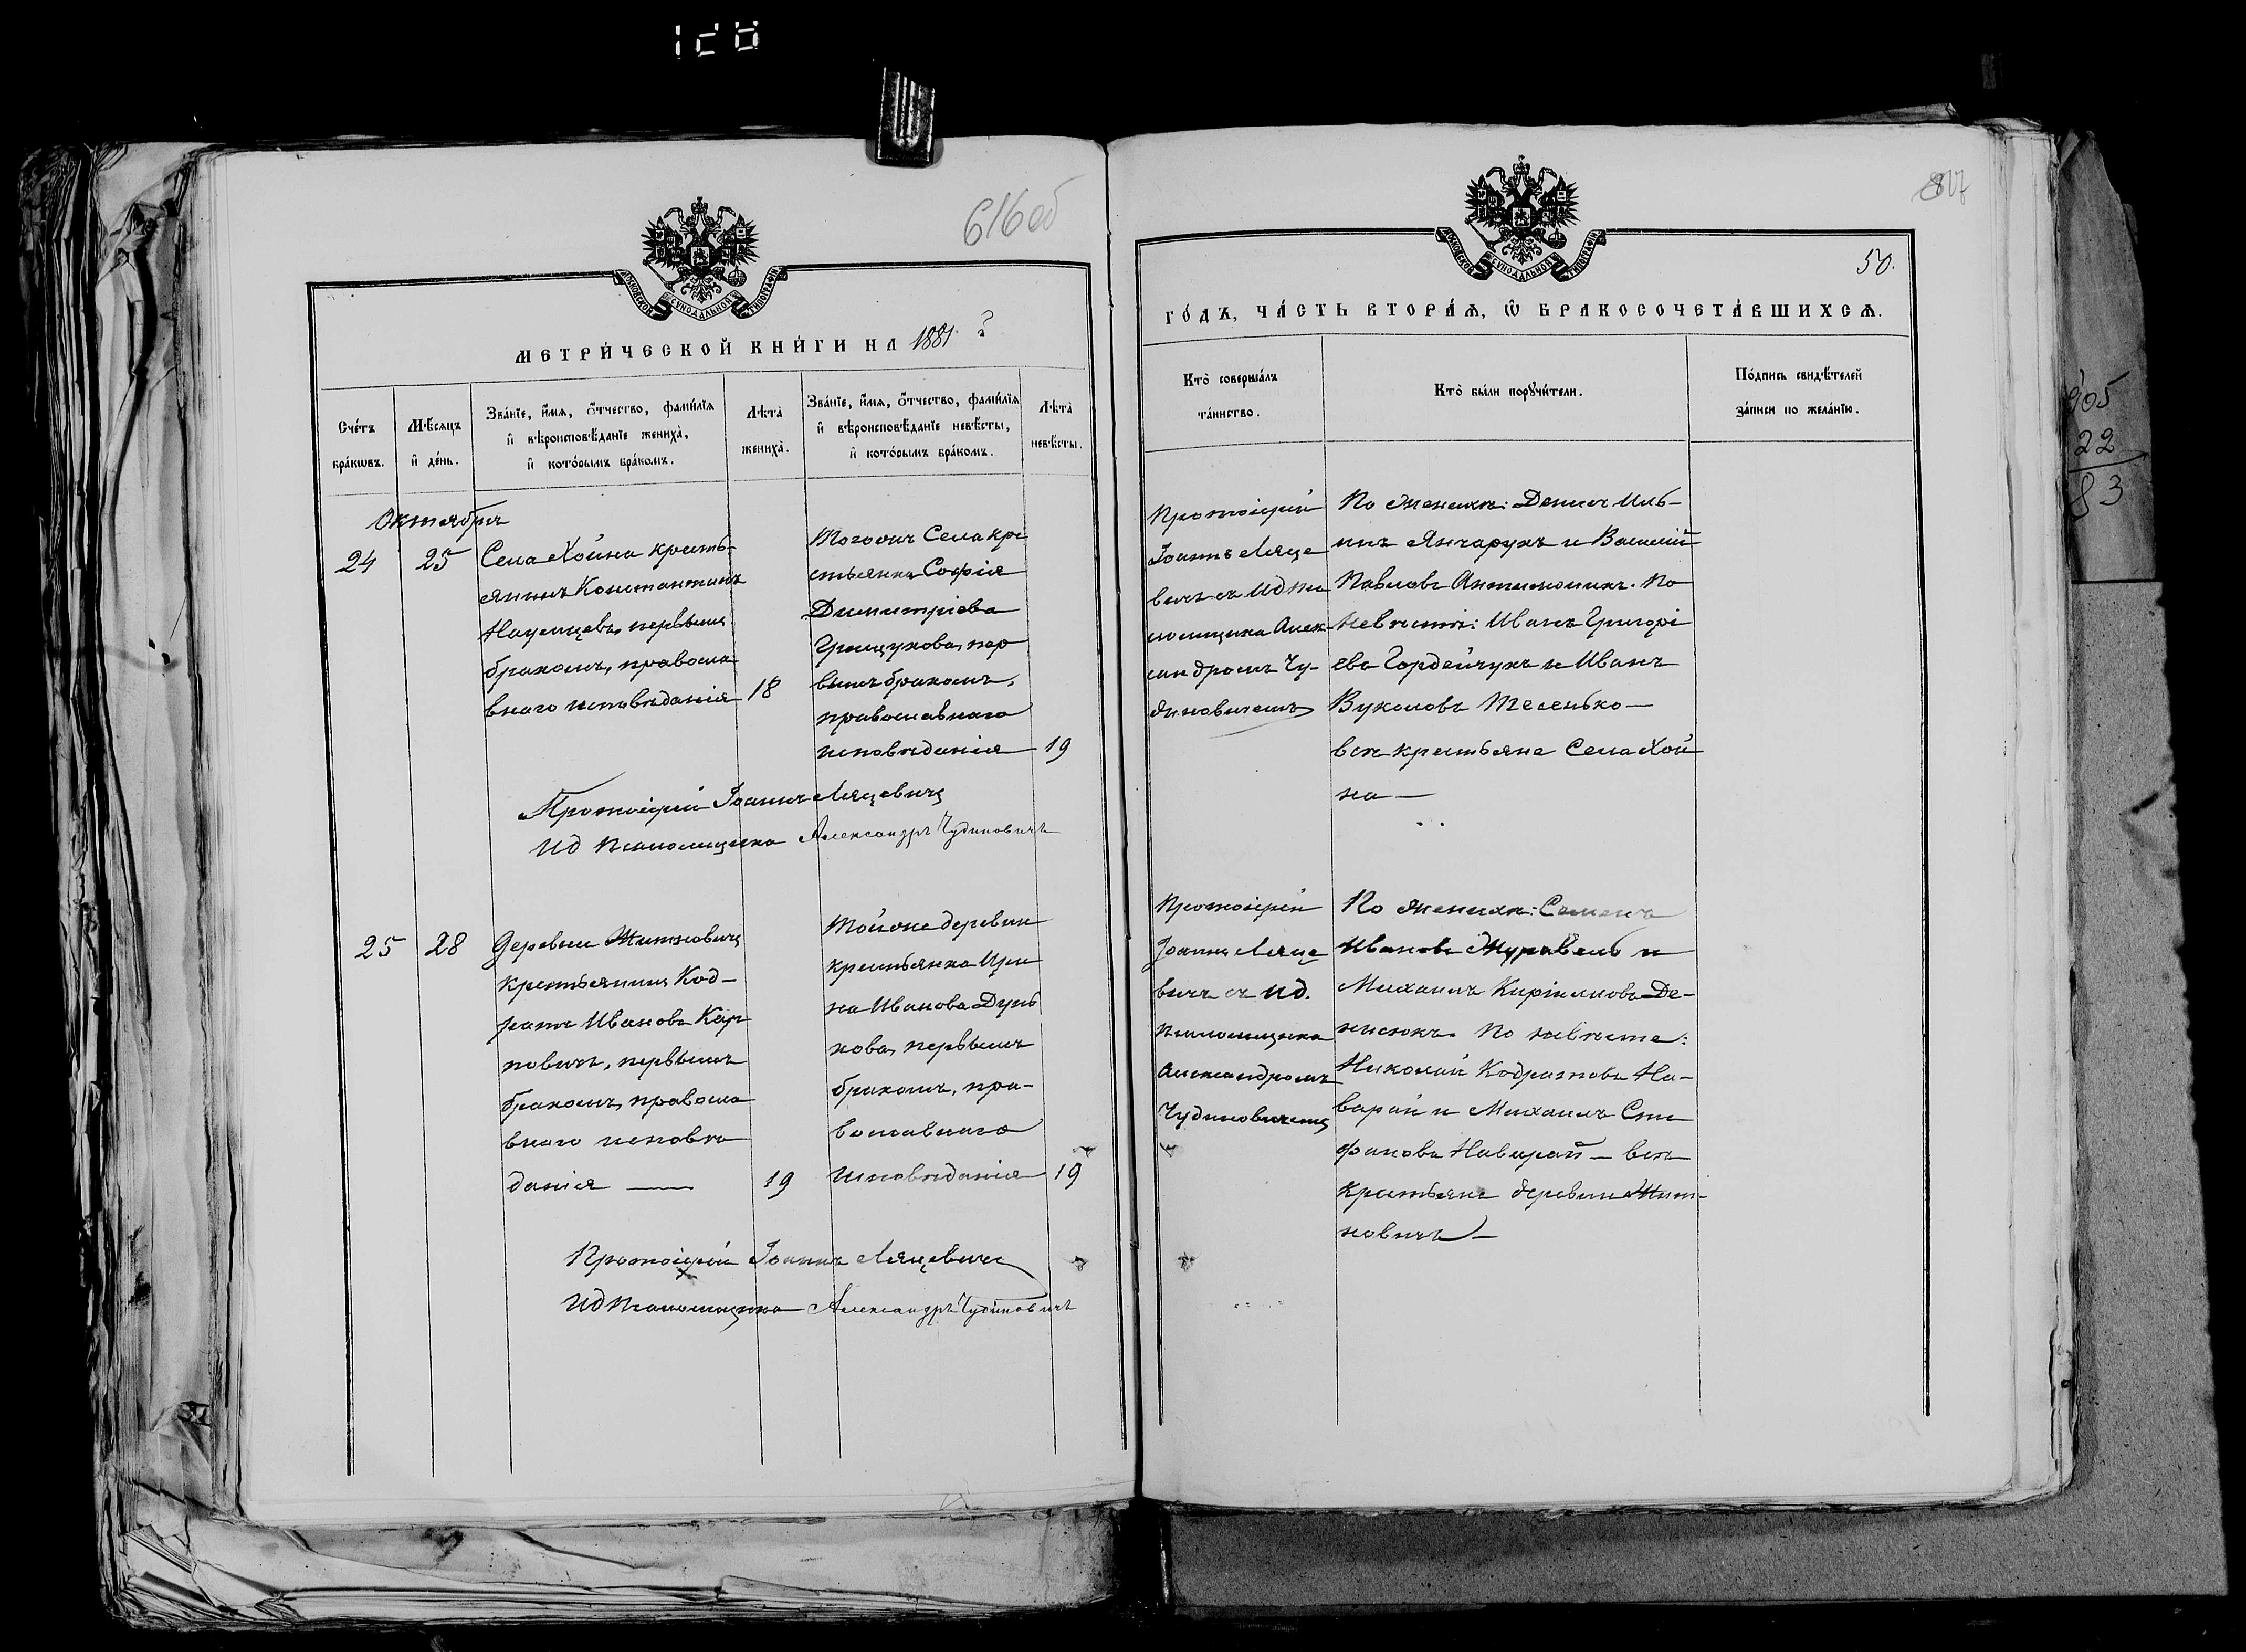 616об
МОСКОВСКОЙ СѴНОДАЛЬНОЙ ТИПОГРАФІИ
МЕТРИ́ЧЕСКОЙ КНИ́ГИ НА 1881 г
Сче́тъ бра́кѡвъ.
Мѣ́сяцъ и҆ де́нь.
Зва́нїе, и҆́мя, ѻ҆́тчество, фами́лїя
и҆ вѣроисповѣ́данїе жениха̀,
и҆ кото́рымъ бра́комъ.
Лѣта̀
жениха̀.
Зва́нїе, и҆́мя, ѻ҆́тчество, фами́лїя
и҆ вѣроисповѣ́данїе невѣ́сты,
и҆ кото́рымъ бра́комъ.
Лѣта̀
невѣ́сты.
Октября
24
25
Села Хойна кресть-
янинъ Константинъ
первымъ
бракомъ, правосла
внаго исповѣданія
18
Тогожъ Села кре
стьянка Софія
Димитріева
Грищукова, пер
вымъ бракомъ,
православнаго
исповѣданія
19
Протоіерей Іоаннъ Ляцевичъ
ИД Псаломщика Александръ Чудиновичъ
25
28
Деревни Житкович
крестьянинъ Код-
ратъ Ивановъ Кар
повичъ, первымъ
бракомъ, правосла
внаго исповѣ
данія
19
Тойже деревни
крестьянка Ири
на Иванова Дунь
кова, первымъ
бракомъ, пра-
вославнаго
исповѣданія
19
Протоіерей Іоаннъ Ляцевичъ
ИД Псаломщика Александръ Чудиновичъ
МОСКОВСКОЙ СѴНОДАЛЬНОЙ ТИПОГРАФІИ
50.
ГО́ДЪ, ЧА́СТЬ ВТОРА́Ѧ, Ѡ҆ БРАКОСОЧЕТА́ВШИХСѦ.
Кто̀ соверша́лъ
та́инство.
Кто̀ бы́ли порꙋчи́тели.
По́дпись свидѣ́телей
за́писи по жела́нїю.
Протоіерей
Іоаннъ Ляце
вичъ съ ИД Пса
ломщика Алек
сандромъ Чу-
диновичемъ
По женихѣ: Денисъ Иль-
инъ Янчарукъ и Василій
Павловъ Антиномикъ. По
невѣстѣ: Иванъ Григорі
евъ Гордейчукъ и Иванъ
Вуколовъ Теленько —
всѣ крестьяне Села Хой
на —
Протоіерей
Іоаннъ Ляце
вичъ съ ИД.
Псаломщика
Александромъ
Чудиновичемъ
По женихѣ: Семенъ
Ивановъ Журавель и
Михаилъ Кириловъ Де-
нисюкъ. По невѣсте:
Николай Кодратовъ На-
варай и Михаилъ Сте
фановъ Наварай — всѣ
крестьяне деревни Жит-
ковичъ —
905
22
83